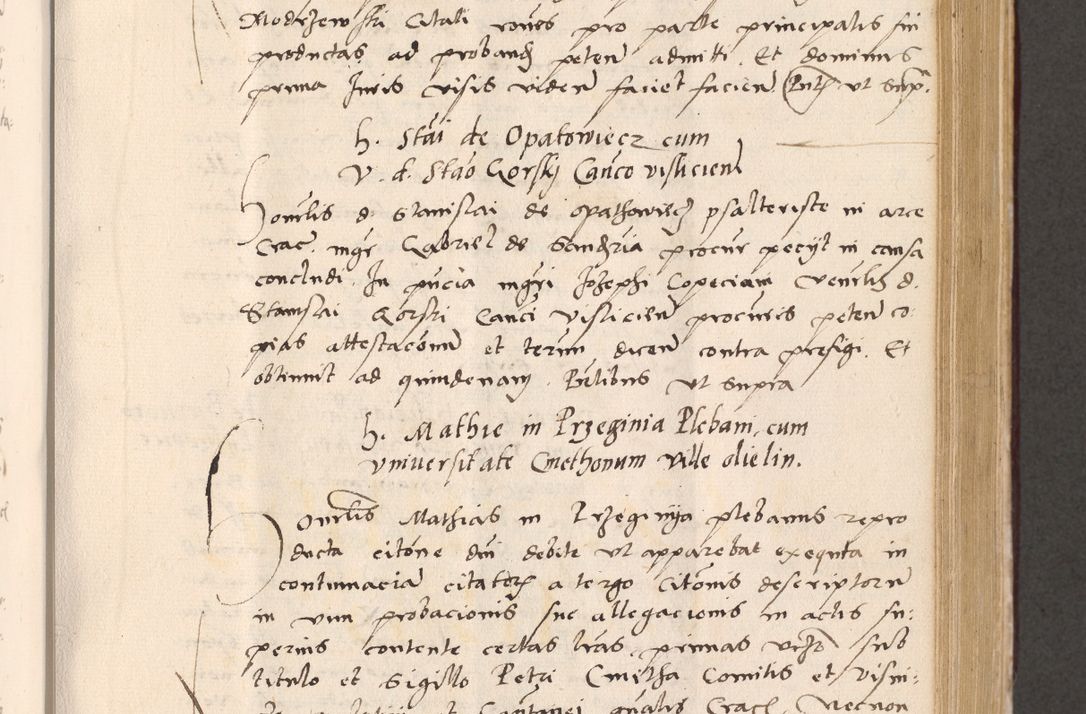 Modrzewski Citati rones pro parte principalis sui
productas ad proband peten admitti. Et dominus
prima Juris visis viden faciet facien Pntẽ ut supra.
h. Stãi de Opatowiecz cum
V. d. Stão Gorski Canco visliciem
Honrlis d. Stanislai de Opathowiecz psalteriste in arce
Crac. mgr Gabriel de procur pecijt in causa
concludi. In pñcia mgri Josephi Copeciam Venrlis d.
Stanislai Gorski Canci Vislicien procuris peten co:
pias attestacõnũ et terũm dicen contra prefigi. Et
obtinuit ad quindenam. Pñtibus ut supra
h. Mathie in Przeginia Plebani, cum
universitate Cmethonum ville olielin.
Honrlis Mathias in Przeginija plebanus repro
ducta citõne dni debite ut apparebat exequuta in
contumaciã citatorum a tergo Citõnis descriptorũ
in vim probacionis sue allegacionis in actis su:
perius contente certas lras primas sub
titulo et Sigillo Petri Cmitha Comitis et Visni:
et Capitanei gnalis Crac. Necnon